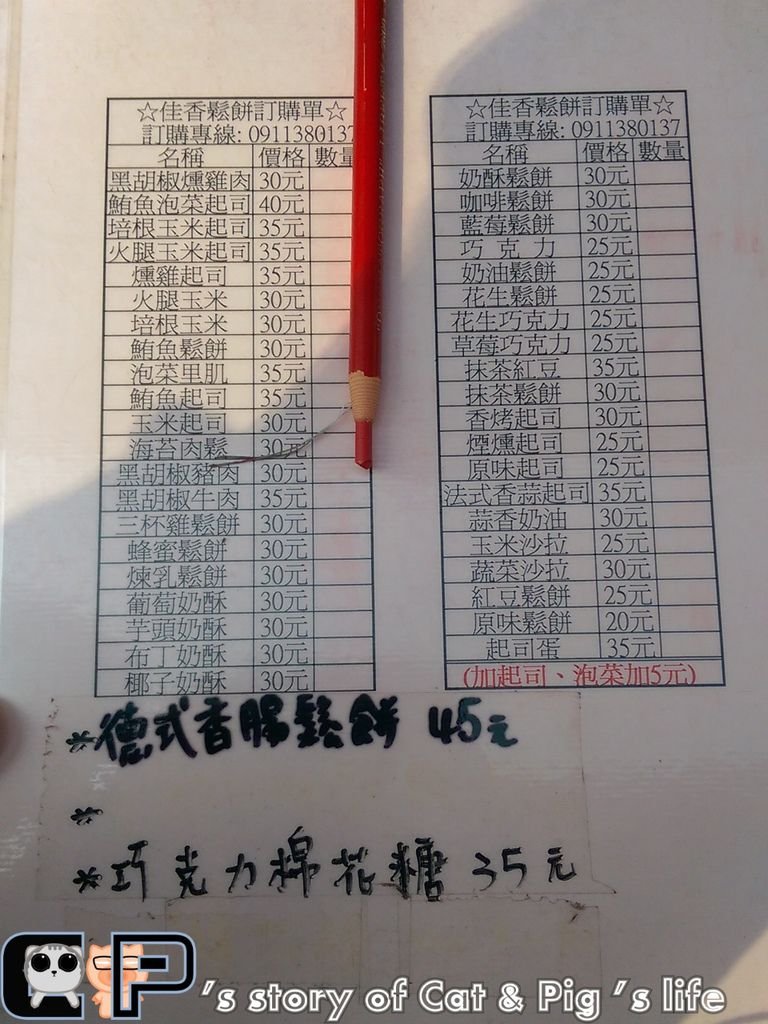 ☆佳香鬆餅訂購單☆
訂購專線: 0911380137
名稱 價格 數量
黑胡椒燻雞肉 30元
鮪魚泡菜起司 40元
培根玉米起司 35元
火腿玉米起司 35元
燻雞起司 35元
火腿玉米 30元
培根玉米 30元
鮪魚鬆餅 30元
泡菜里肌 35元
鮪魚起司 35元
玉米起司 30元
海苔肉鬆 30元
黑胡椒豬肉 30元
黑胡椒牛肉 35元
三杯雞鬆餅 30元
蜂蜜鬆餅 30元
煉乳鬆餅 30元
葡萄奶酥 30元
芋頭奶酥 30元
布丁奶酥 30元
椰子奶酥 30元
☆佳香鬆餅訂購單☆
訂購專線: 0911380137
名稱 價格 數量
奶酥鬆餅 30元
咖啡鬆餅 30元
藍莓鬆餅 30元
巧克力 25元
奶油鬆餅 25元
花生鬆餅 25元
花生巧克力 25元
草莓巧克力 25元
抹茶紅豆 35元
抹茶鬆餅 30元
香烤起司 30元
煙燻起司 25元
原味起司 25元
法式香蒜起司 35元
蒜香奶油 30元
玉米沙拉 25元
蔬菜沙拉 30元
紅豆鬆餅 25元
原味鬆餅 20元
起司蛋 35元
(加起司、泡菜加5元)
*德式香腸鬆餅 45元
*
*巧克力棉花糖 35元
CP's story of Cat & Pig's life